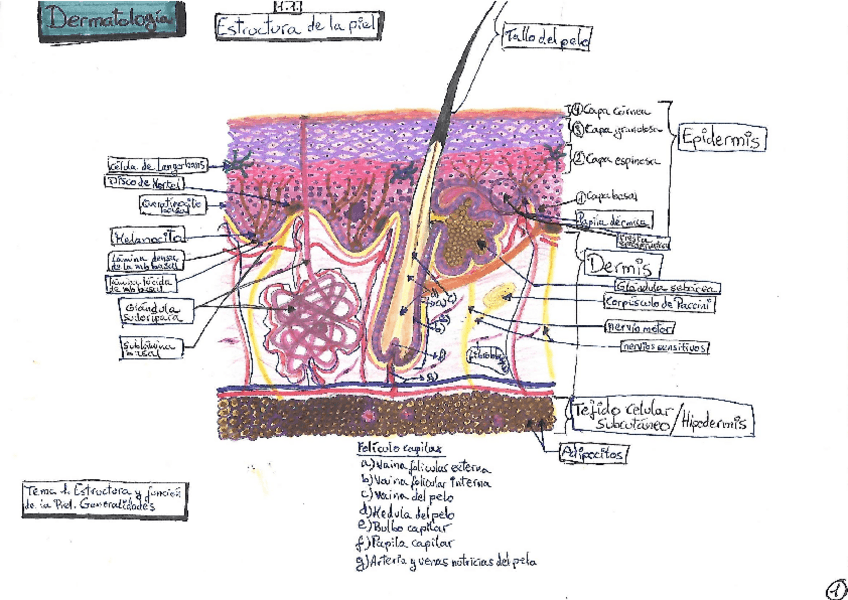 Dermatología
H.1.
Estructura de la piel
Tallo del pelo
④ Capa córnea
③ Capa granulosa
② Capa espinosa
① Capa basal
Epidermis
Papila dérmica
Dermis
Glándula sebácea
Corpúsculo de Paccini
nervio motor
nervios sensitivos
Célula de Langerhans
Disco de Merkel
Queratinocito
basal
Melanocito
Lámina densa
de la mb basal
Lámina lúcida
de mb basal
Glándula
sudorípara
Sublámina
basal
a)
b)
c)
f)
g)
Tejido celular
subcutáneo/Hipodermis
Adipocitos
Folículo capilar
a) Vaina folicular externa
b) Vaina folicular interna
c) Vaina del pelo
d) Medula del pelo
e) Bulbo capilar
f) Papila capilar
g) Arteria y venas nutricias del pelo
Tema 1. Estructura y función
de la Piel. Generalidades
1